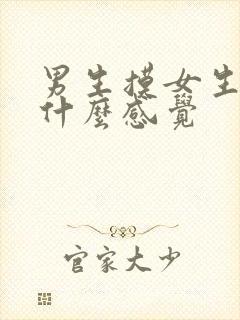 男生摸女生
什麼感覺
官家大少